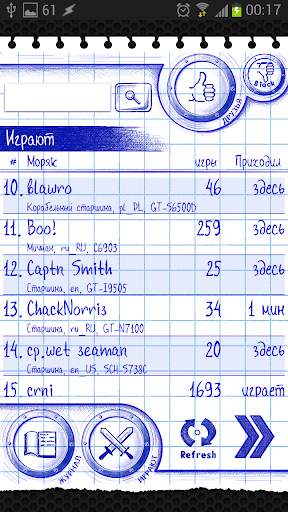 61 00:17
Block
ДРУЗЬЯ
Играют
# Моряк игры Приходил
10. blawro 46 здесь
Корабельный старшина, pl_PL, GT-S6500D
11. Boo! 259 здесь
Мичман, ru_RU, C6903
12. Captn Smith 25 здесь
Старшина, en, GT-I9505
13. ChackNorris 34 1 мин
Старшина, ru_RU, GT-N7100
14. cp.wet seaman 20 здесь
Старшина, en_US, SCH-S738C
15. crni 1693 играет
ЖУРНАЛ
ИГРАЮТ
Refresh